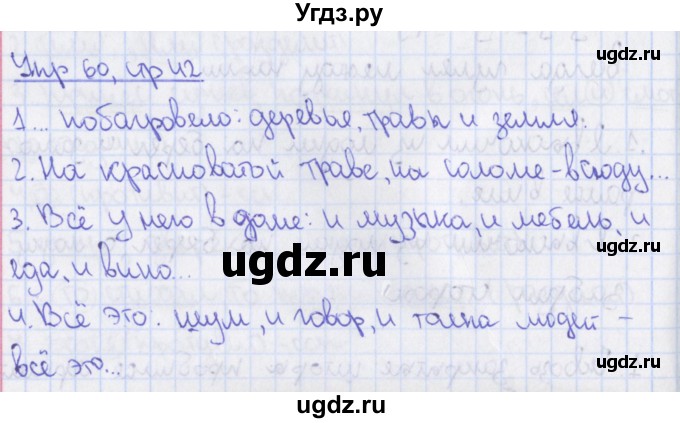 Угдз.ру
Упр 60, стр 42
1... побагровело: деревья, травы и земля: .
2. На красноватой траве, на соломе - всюду...
3. Всё у него в доме: и музыка, и мебель, и
еда, и вино...
4. Всё это: шум, и говор, и толпа людей -
всё это...
ugdz.ru
ugdz.ru
ugdz.ru
ugdz.ru
ugdz.ru
ugdz.ru